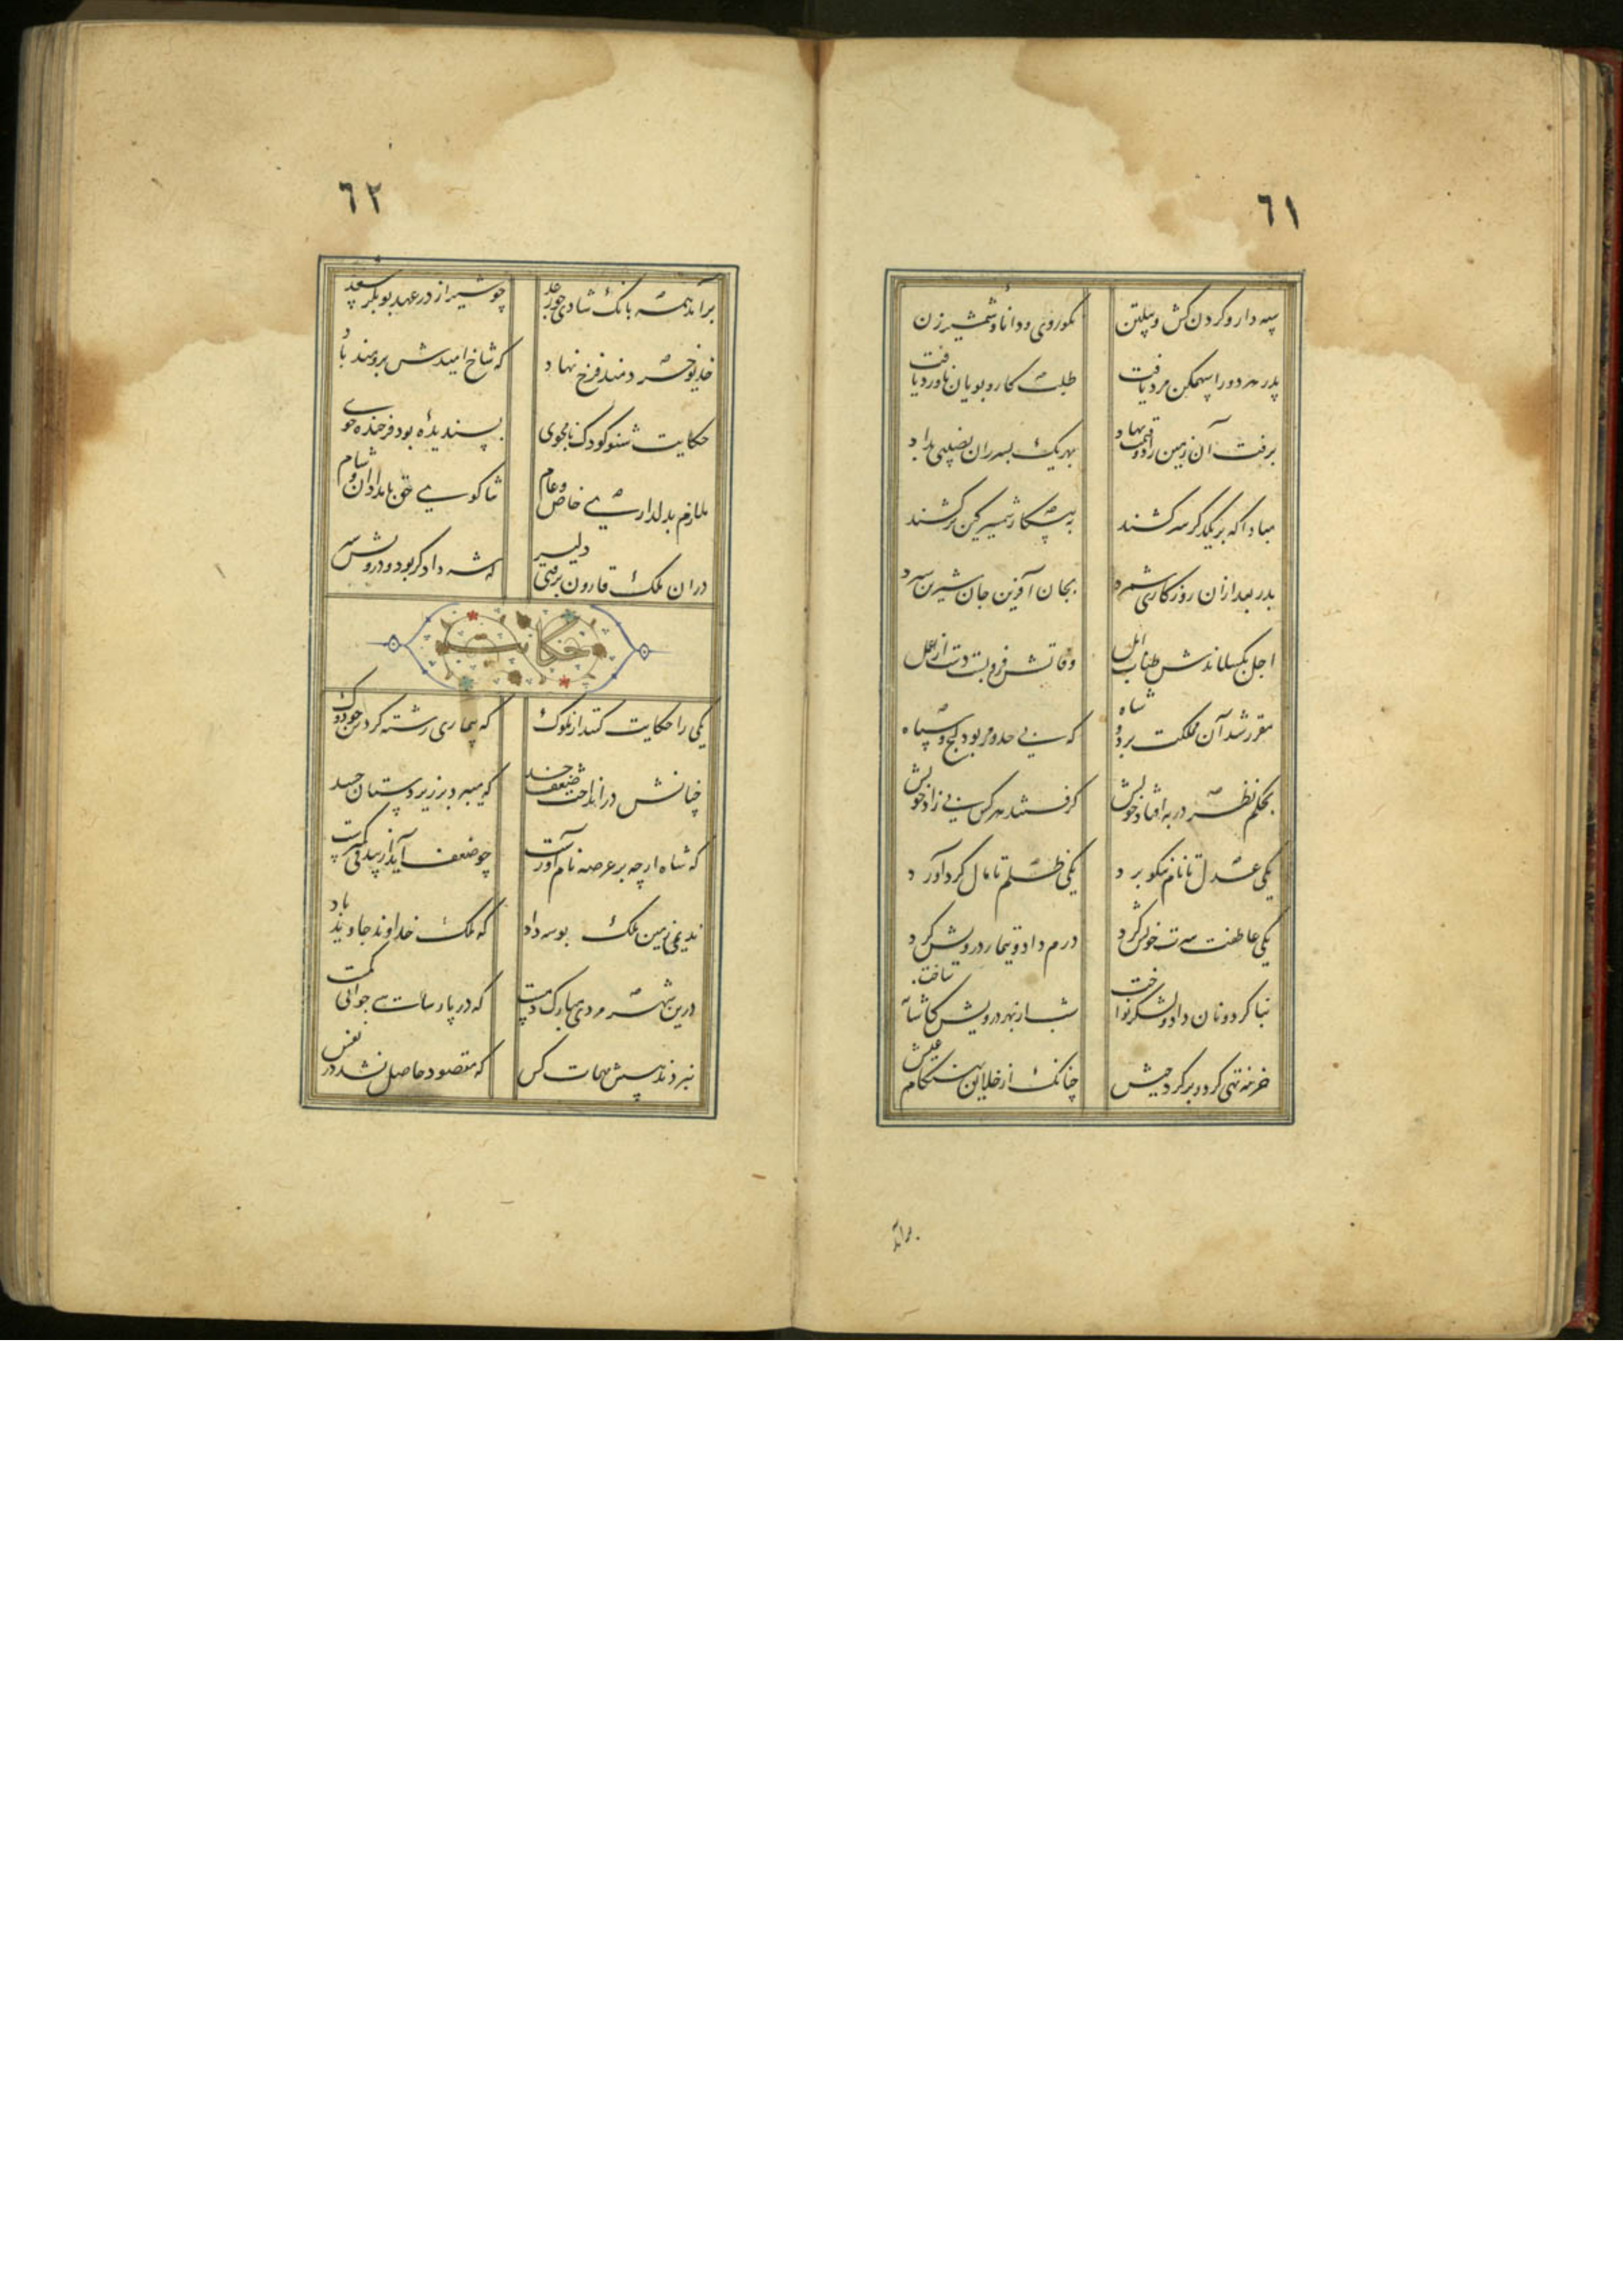 ٦١
سپه دار و گردن کش و پیلتن نکو روی و دانا و شمشیر زن
پدر هر دو را سهمگن مرد یافت طلبکار و پویان ناورد یافت
برفت آن زمین را دو قسمت نهاد بهر یک پسر زان نصیبی بداد
مبادا که بر یکدگر سر کشند به پیکار شمشیر کین بر کشند
پدر بعد ازان روزگاری شمرد بجان آفرین جان شیرین سپرد
اجل بگسلاندش طناب امل وفاتش فرو بست دست از عمل
مقرر شد آن مملکت بر دو شاه که بی حد و مر بود گنج و سپاه
بحکم نظر در به افتاد خویش گرفتند هر کس یکی زاد خویش
یکی عدل تا نام نیکو برد یکی ظلم تا مال گرد آورد
یکی عاطفت سیرت خویش کرد درم داد و تیمار درویش کرد
بنا کرد و نان داد و لشکر نواخت شب از بهر درویش کاشانه ساخت
خزینه تهی کرد و پر کرد جیش چنانک از خلایق بهنگام عیش
برآمد
٦٢
برآمد همه بانگ شادی چو رعد چو شیراز در عهد بوبکر سعد
خدیو خردمند فرخ نهاد که شاخ امیدش برومند باد
حکایت شنو کودک نامجوی پسندیده بود فرخنده خوی
ملازم بدلداری خاص و عام ثنا گوی حق بامدادان و شام
دران ملک قارون برفتی دلیر که شه دادگر بود و درویش سیر
حکایت
یکی را حکایت کنند از ملوک که بیماری رشته کردش چو دوک
چنانش در انداخت ضعف جسد که میبرد بر زیردستان حسد
که شاه ارچه بر عرصه نام آورست چو ضعف آید از بیدقی کمترست
ندیمی زمین ملک بوسه داد که ملک خداوند جاوید باد
درین شهر مردی مبارک دمست که در پارسائی چو اوئی کمست
نبردند پیشش مهمات کس که مقصود حاصل نشد در نفس